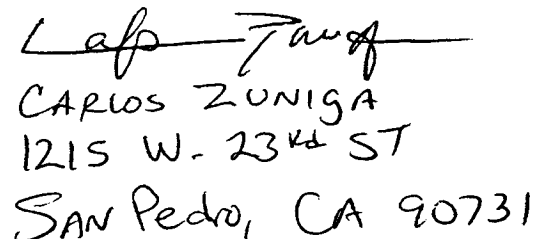 CARLOS ZUNIGA
1215 W. 23rd ST
SAN Pedro, CA 90731